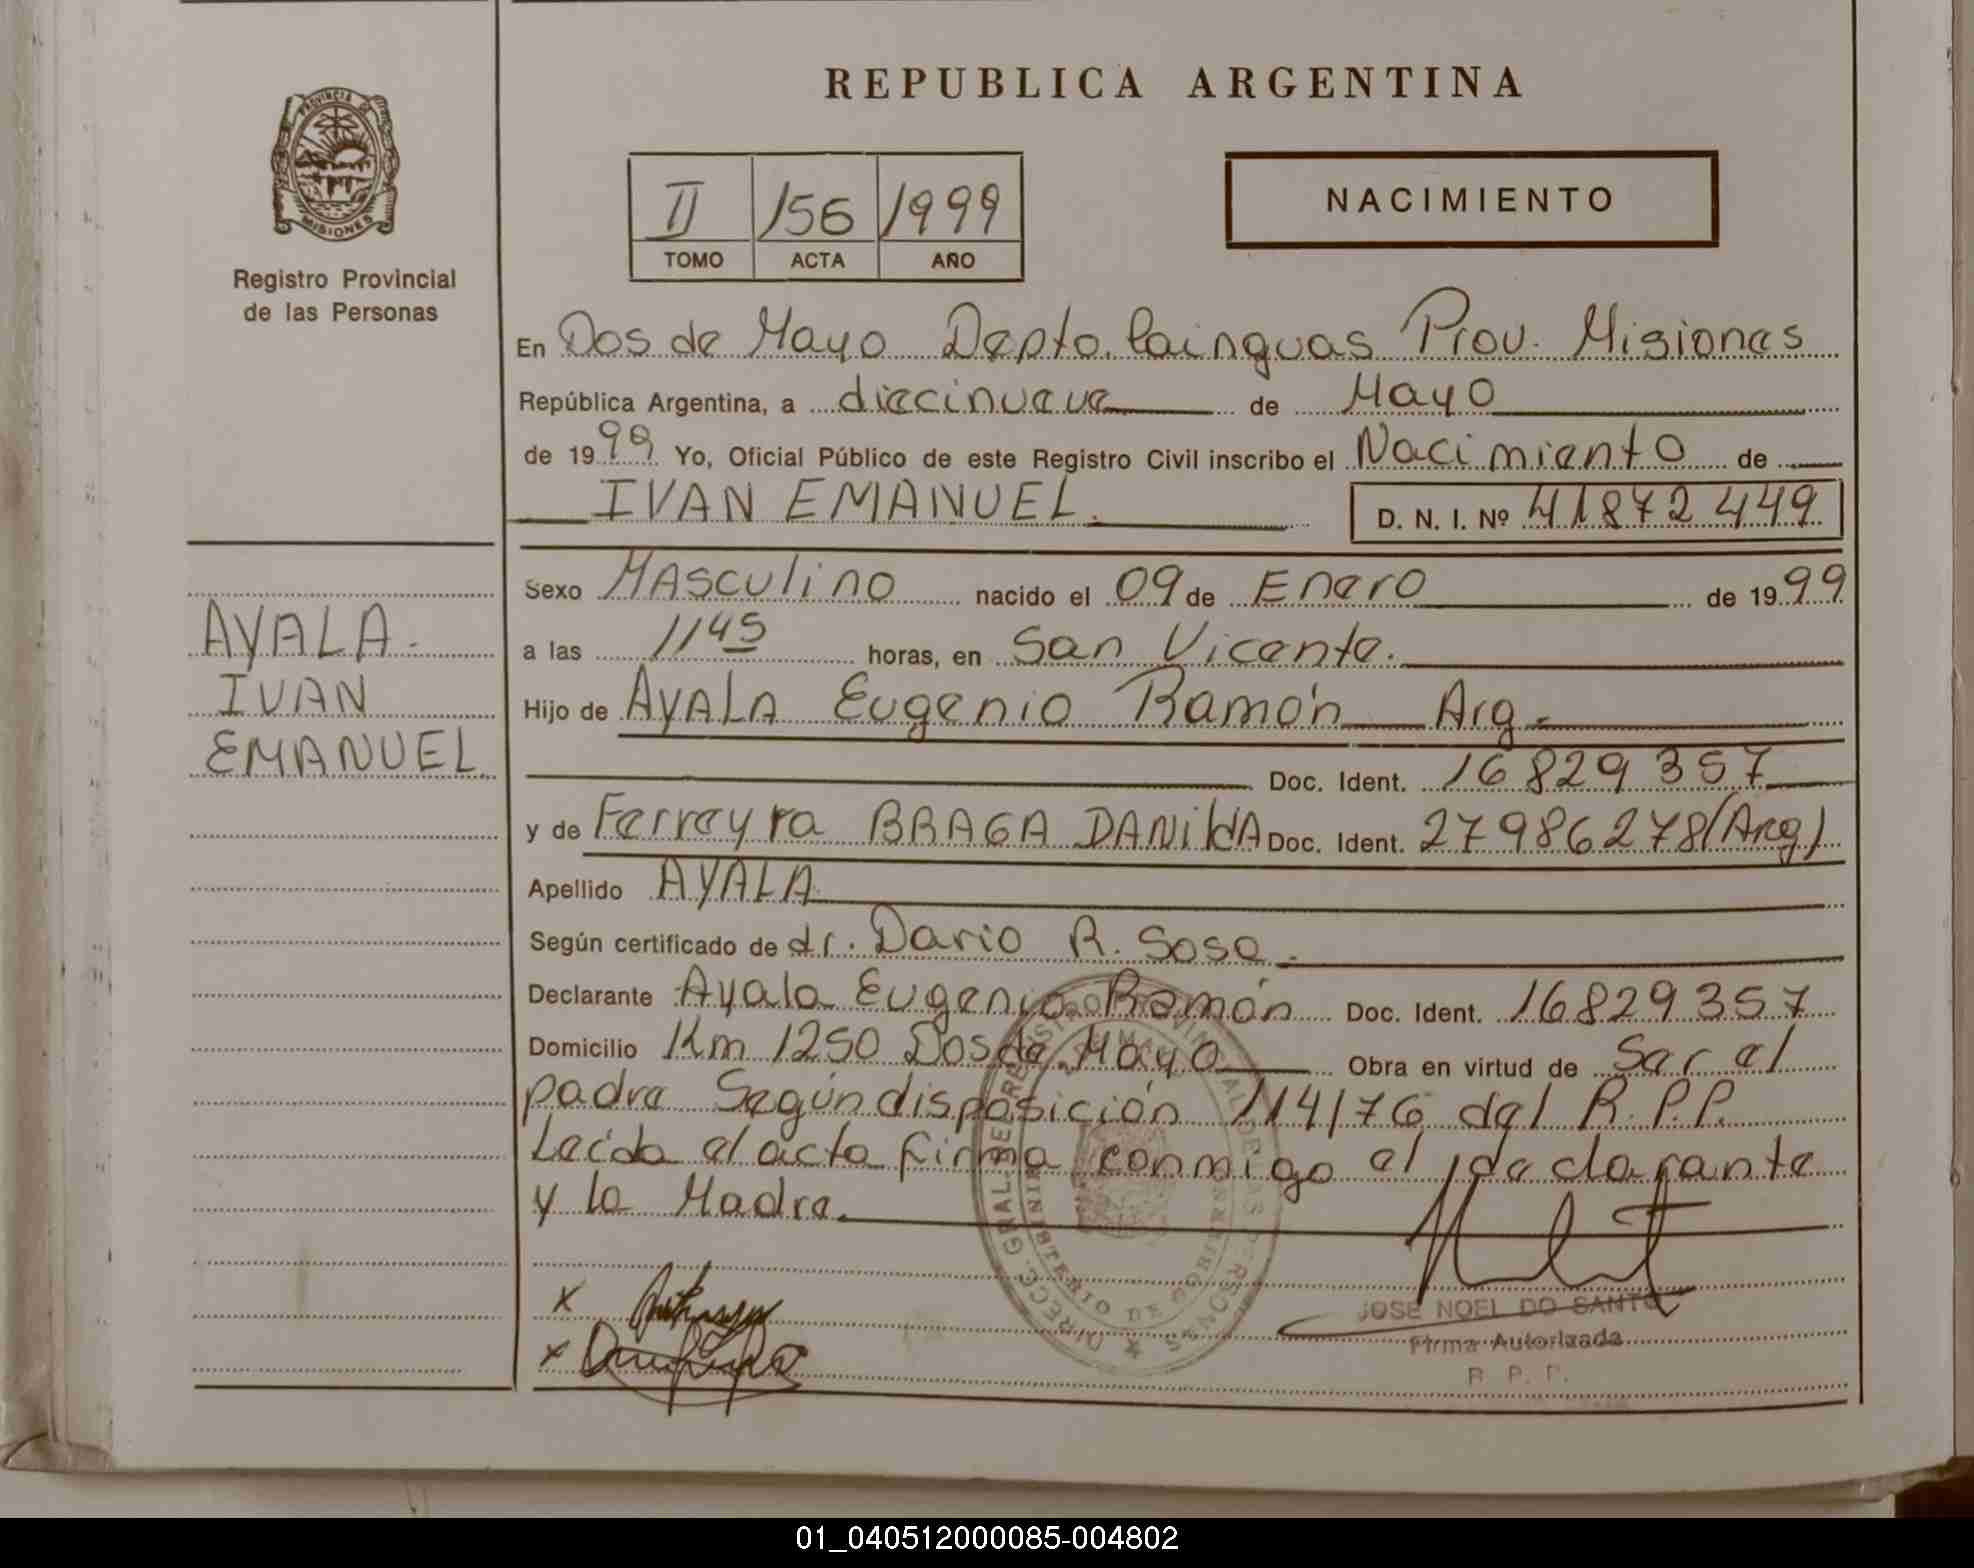 REPUBLICA ARGENTINA
PROVINCIA DE MISIONES
Registro Provincial
de las Personas
II 156 1999
TOMO ACTA AÑO
NACIMIENTO
En Dos de Mayo Depto. Cainguas Prov. Misiones
República Argentina, a diecinueve de Mayo
de 1999 Yo, Oficial Público de este Registro Civil inscribo el Nacimiento de
IVAN EMANUEL. D. N. I. Nº 41872449
Sexo Masculino nacido el 09 de Enero de 1999
a las 11 45 horas, en San Vicente.
Hijo de AYALA Eugenio Ramón Arg.
Doc. Ident. 16829357
y de Ferreyra BRAGA DANILDA Doc. Ident. 27986278 (Arg)
Apellido AYALA
Según certificado de dr. Dario R. Sosa.
Declarante Ayala Eugenio Ramón Doc. Ident. 16829357
Domicilio Km 1250 Dos de Mayo Obra en virtud de Ser el
padre Según disposición 114/76 del R.P.P.
Leida el acta firma conmigo el declarante
y la Madre.
AYALA.
IVAN
EMANUEL.
x
x
DIRECC. GRAL. DEL REGISTRO PROVINCIAL DE LAS PERSONAS
MINISTERIO DE GOBIERNO
JOSE NOEL DO SANTO
Firma Autorizada
R. P. P.
01_040512000085-004802